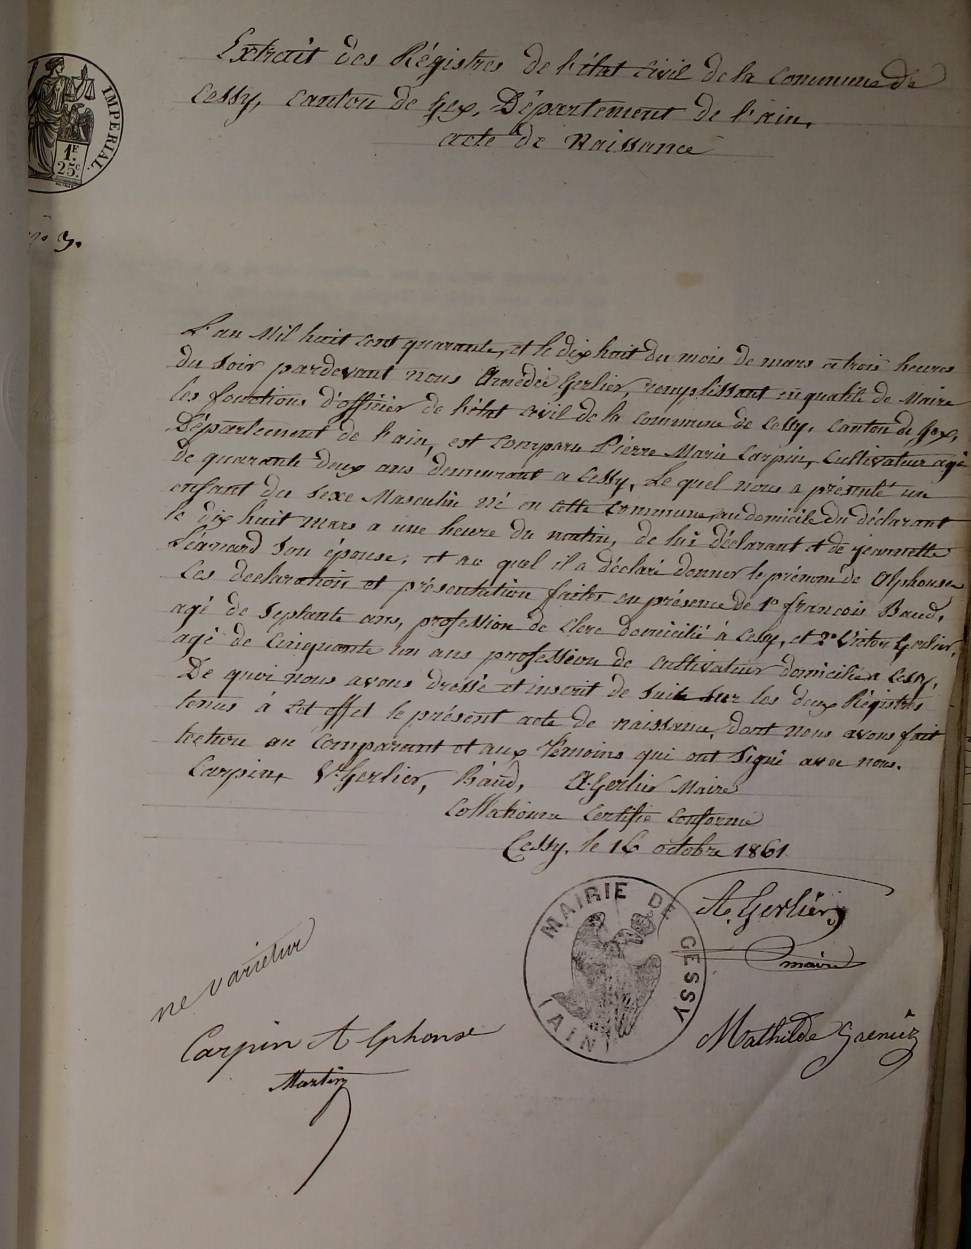 Extrait des Régistres de l'état civil de la commune de
Cessy, canton de Gex, Département de l'ain,
acte de Naissance
IMPERIAL.
1F
25c
L'an Mil huit cent quarante, et le dix huit du mois de mars a trois heures
du soir pardevant nous Amédée Gerlier, remplissant en qualité de Maire
les fonctions d'officier de l'état civil de la commune de Cessy, canton de Gex,
Département de l'ain, est comparu Pierre Marie Carpin, cultivateur agé
de quarante deux ans demeurant a Cessy, Le quel nous a présenté un
enfant du sexe Masculin né en cette commune, au domicile du déclarant
le dix huit mars a une heure du matin, de lui déclarant et de jeannette
Léanard son épouse, et au quel il a déclaré donner le prénom de Alphonse
Les declaration et présentation faites en présence de 1° françois Baud,
agé de septante ans, profession de clerc domicilié à Cessy, et 2° Victor Gerlier,
agé de cinquante un ans profession de cultivateur domicilié a Cessy,
De quoi nous avons dressé et inscrit de suite sur les deux Régistres
tenus à cet effet le présent acte de naissance, dont nous avons fait
lecture au comparant et aux témoins qui ont signé avec nous.
Carpin, Vr Gerlier, Baud, A. Gerlier Maire
Collationné certifié conforme
Cessy, le 16 octobre 1861
A. Gerlier
maire
MAIRIE DE CESSY
(AIN)
ne varietur
Carpin Alphonse
Martin
Mathilde